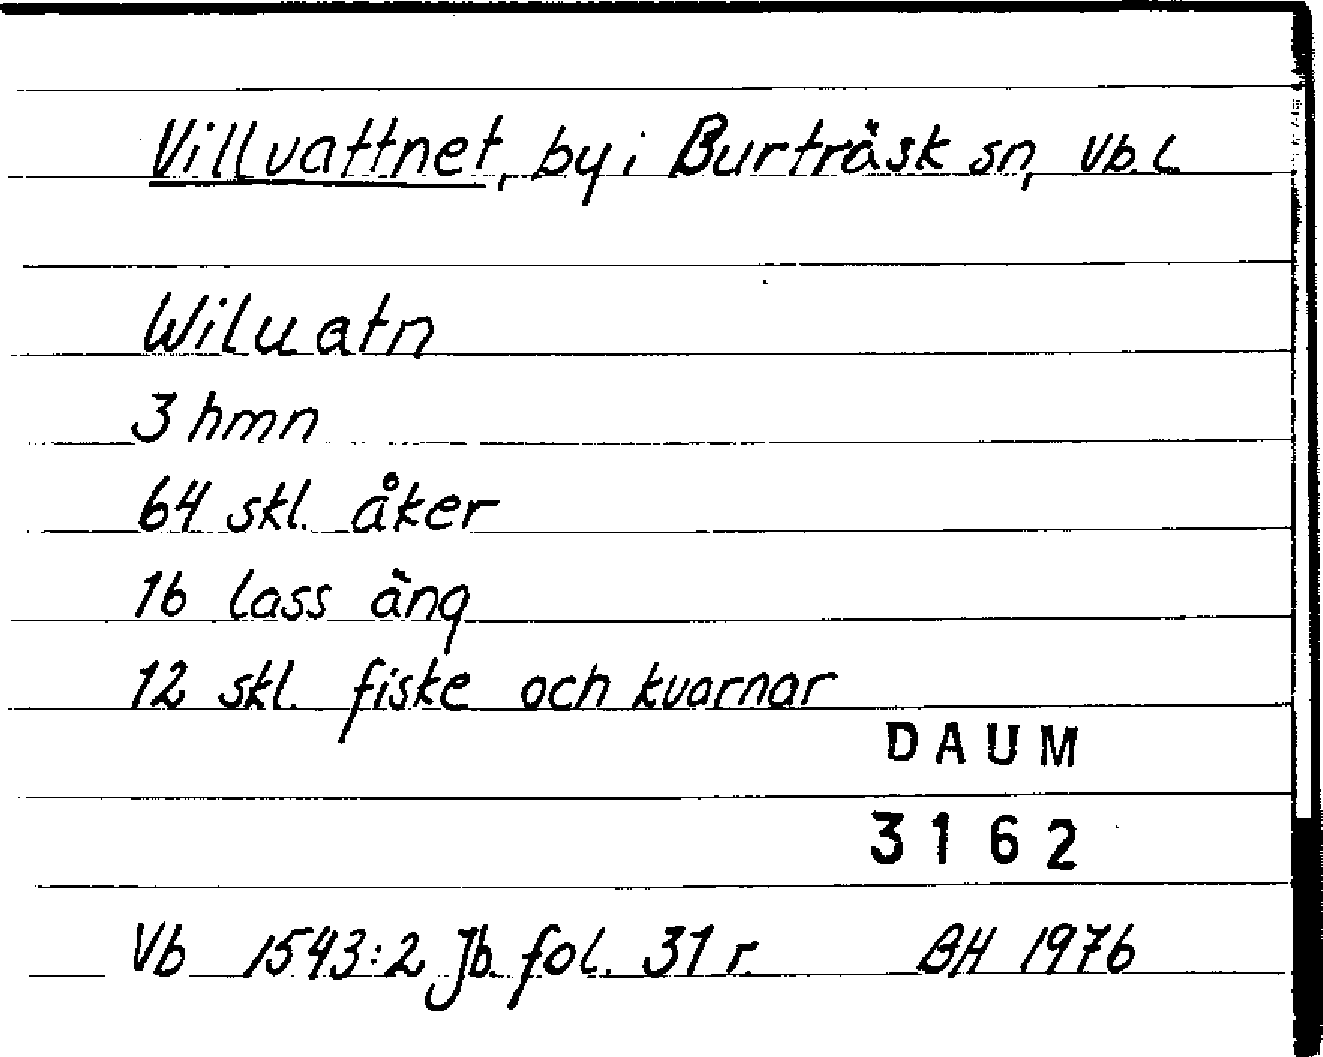 Villvattnet, by i Burträsk sn, Vb. l.
Wiluatn
3 hmn
64 skl. åker
16 lass äng
12 skl. fiske och kvarnar
DAUM
3162
Vb 1543:2 Jb. fol. 31 r. BH 1976